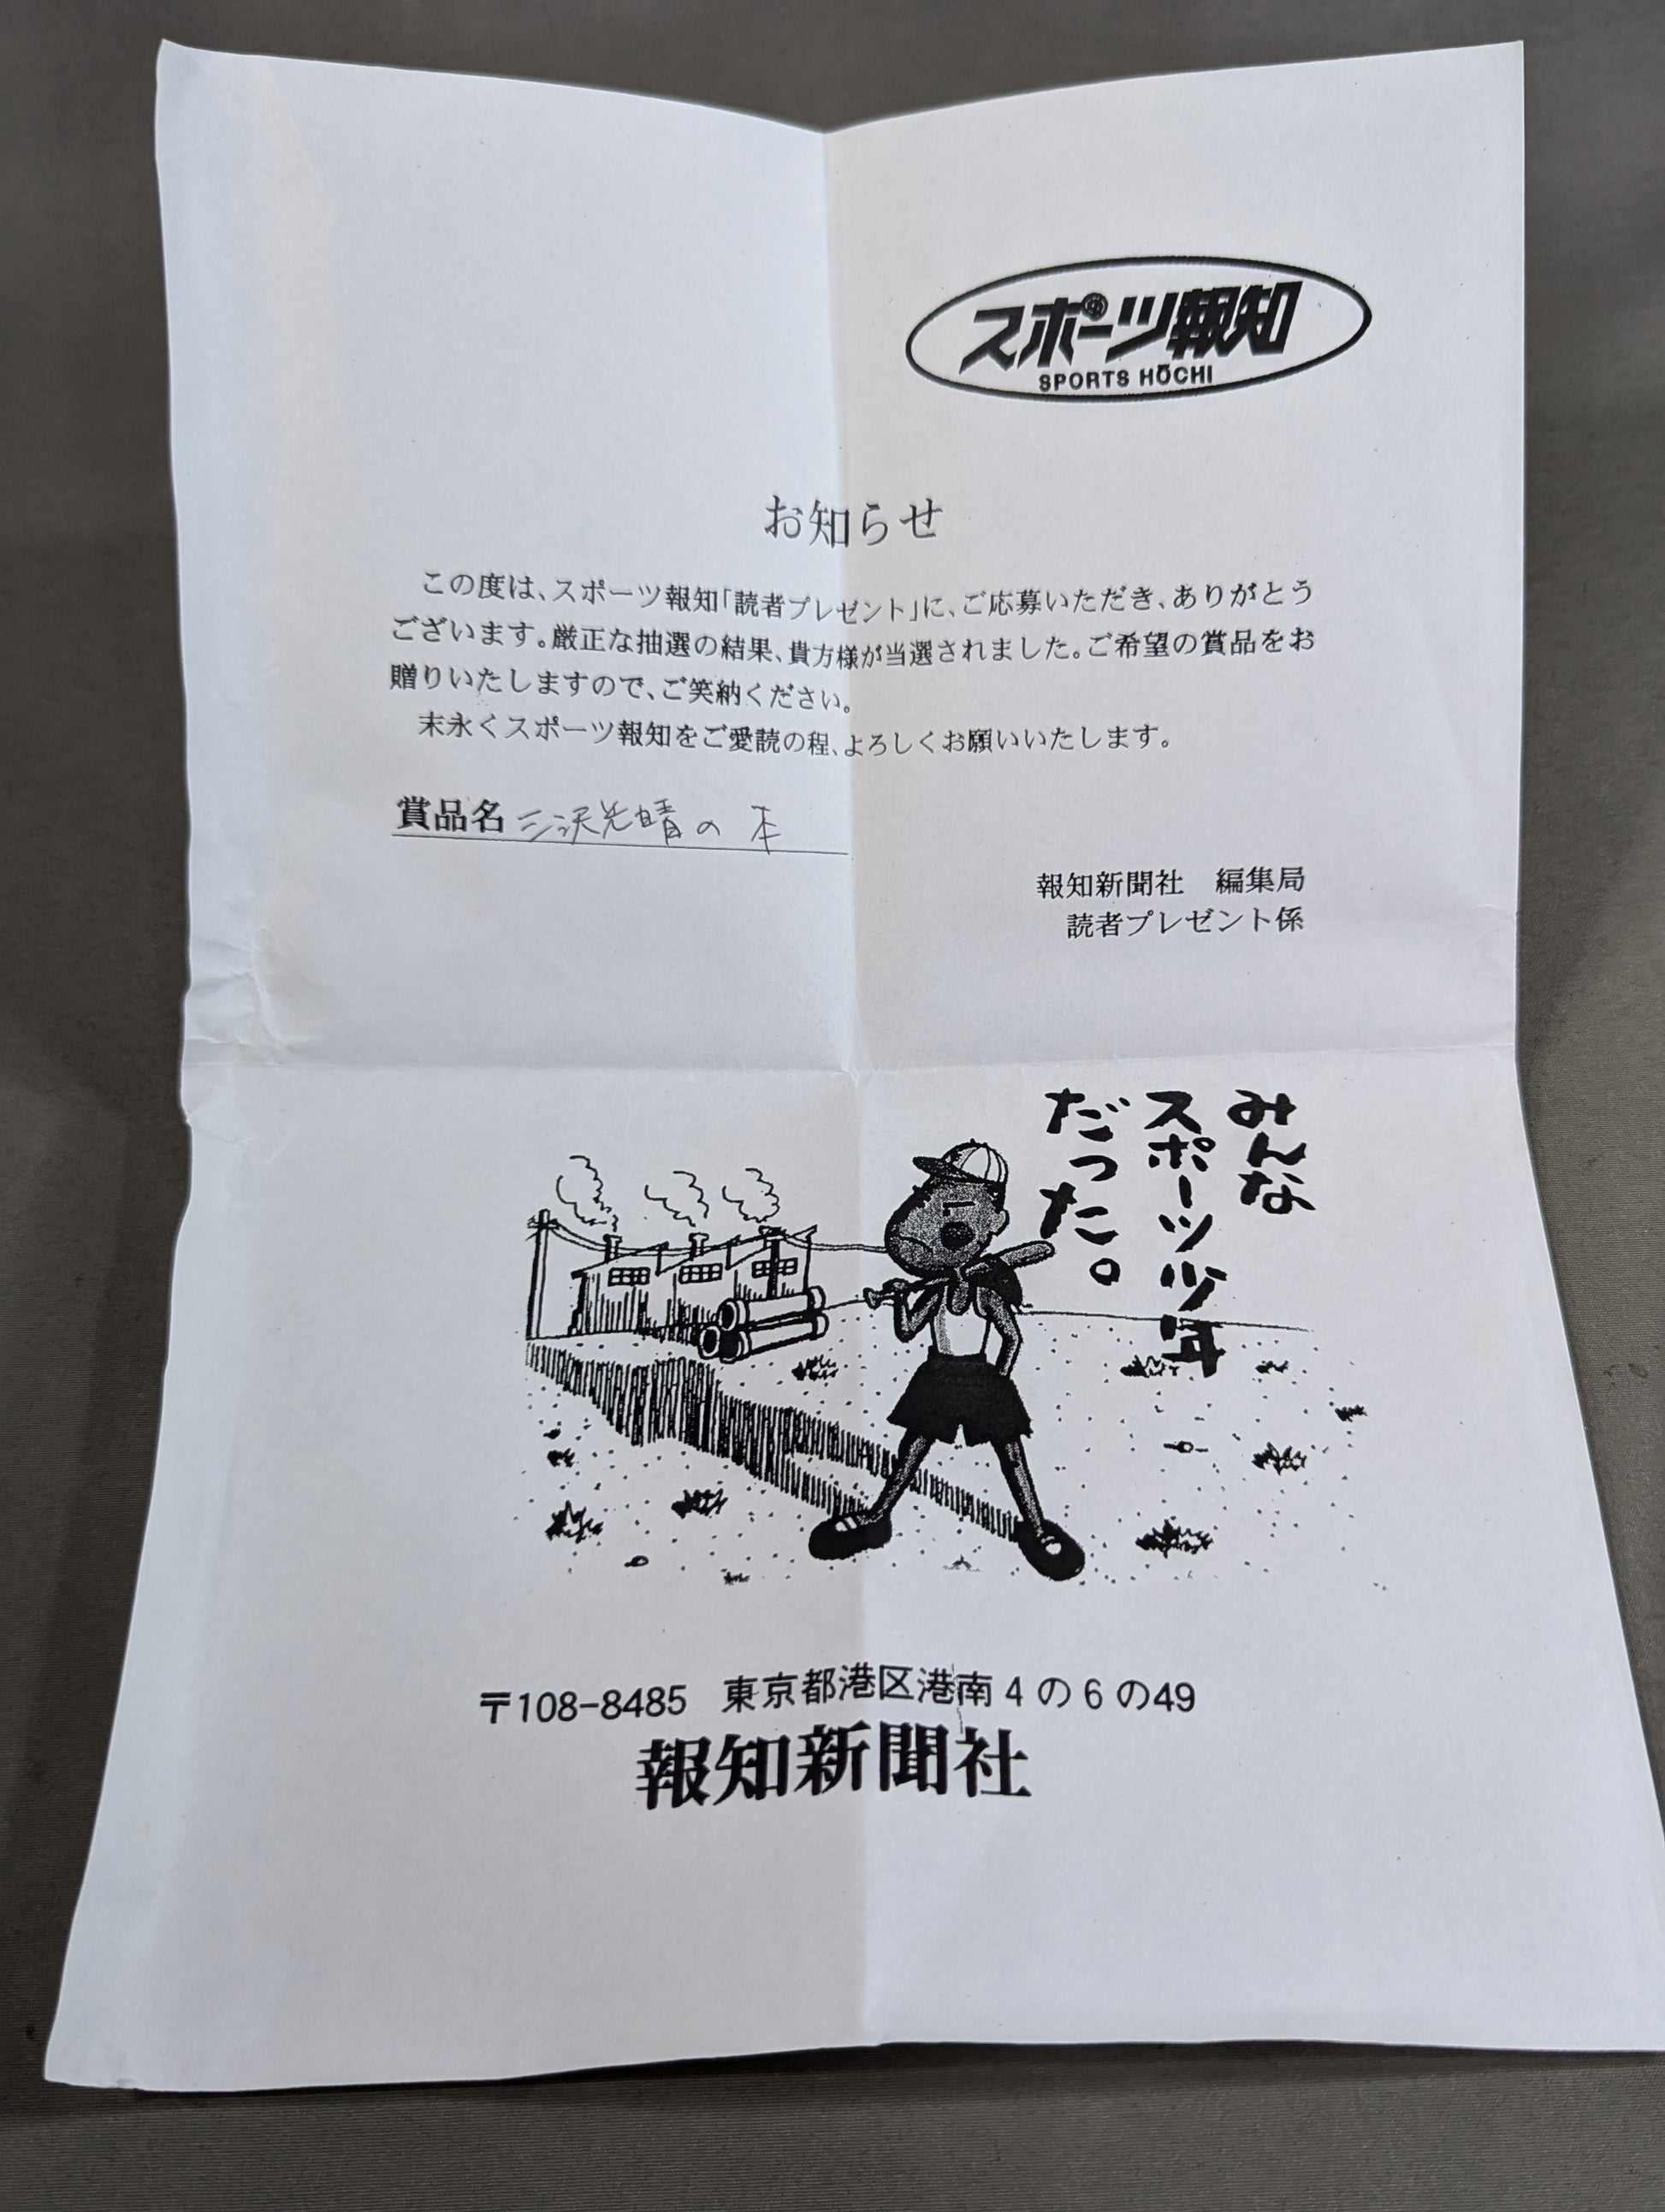 スポーツ報知
SPORTS HŌCHI
お知らせ
この度は、スポーツ報知「読者プレゼント」に、ご応募いただき、ありがとう
ございます。厳正な抽選の結果、貴方様が当選されました。ご希望の賞品をお
贈りいたしますので、ご笑納ください。
末永くスポーツ報知をご愛読の程、よろしくお願いいたします。
賞品名 三沢光晴の 本
報知新聞社 編集局
読者プレゼント係
みんな
スポーツ少年
だった。
〒108-8485 東京都港区港南4の6の49
報知新聞社